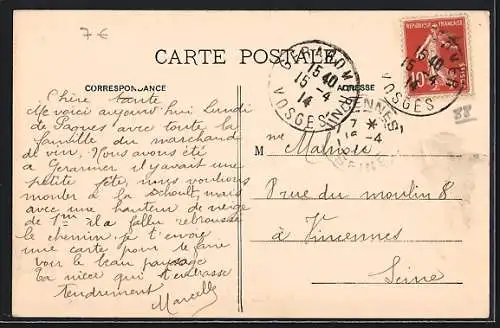 7 €
CARTE POSTALE
CORRESPONDANCE
ADRESSE
GERARDMER
15 40
15-4
14
VOSGES
VINCENNES
7 *
16-4
SEINE
REPUBLIQUE FRANÇAISE
10
15 40
15-4
VOSGES
Chère tante
Me voici aujourd'hui Lundi
de Paques avec toute la
famille du marchand
de vin, Nous avons été
a Gerarmer il y avait une
petite fête, nous voulions
monter a la Schlucht mais
avec une hauteur de neige
de 1m il a fallu rebrousser
le chemin. je t'envoie
une carte pour te faire
voir le beau paysage
Ta nièce qui t'embrasse
tendrement
Marcelle
Mme
8 rue du moulin 8
à Vincennes
Seine